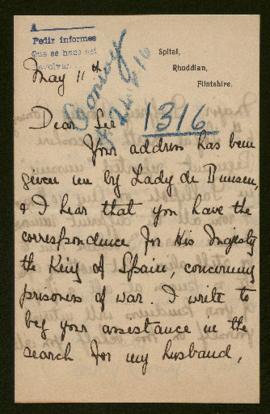 A
Pedir informes
Que se haga así
Spital,
Rhoddian,
Flintshire.
May 11th
1316
Dear Sir
Your address has been
given me by Lady de Bunsen,
& I hear that you have the
correspondence for His Majesty
the King of Spain, concerning
prisoners of war. I write to
beg your assistance in the
search for my husband,